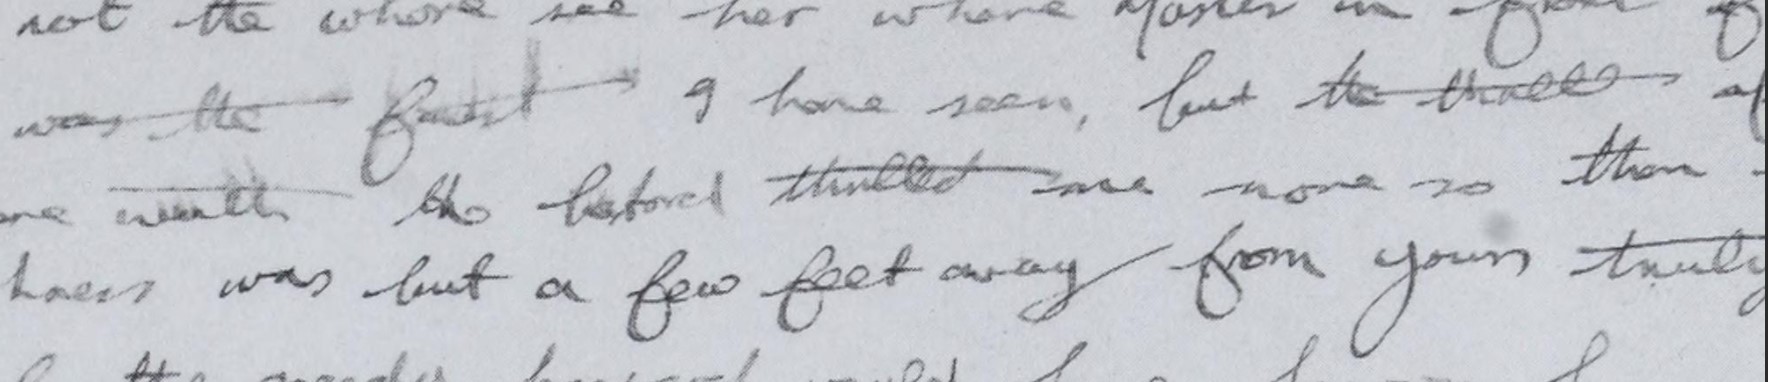 not the whore see her whore Master in front of
was the first I have seen, but the thrill of
me with the bastard thrilled me more so than
was but a few feet away from yours truly
the